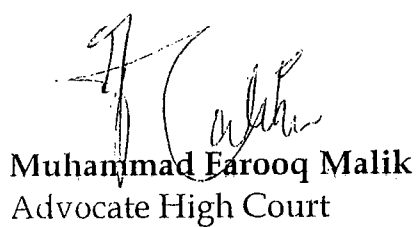 Muhammad Farooq Malik
Advocate High Court